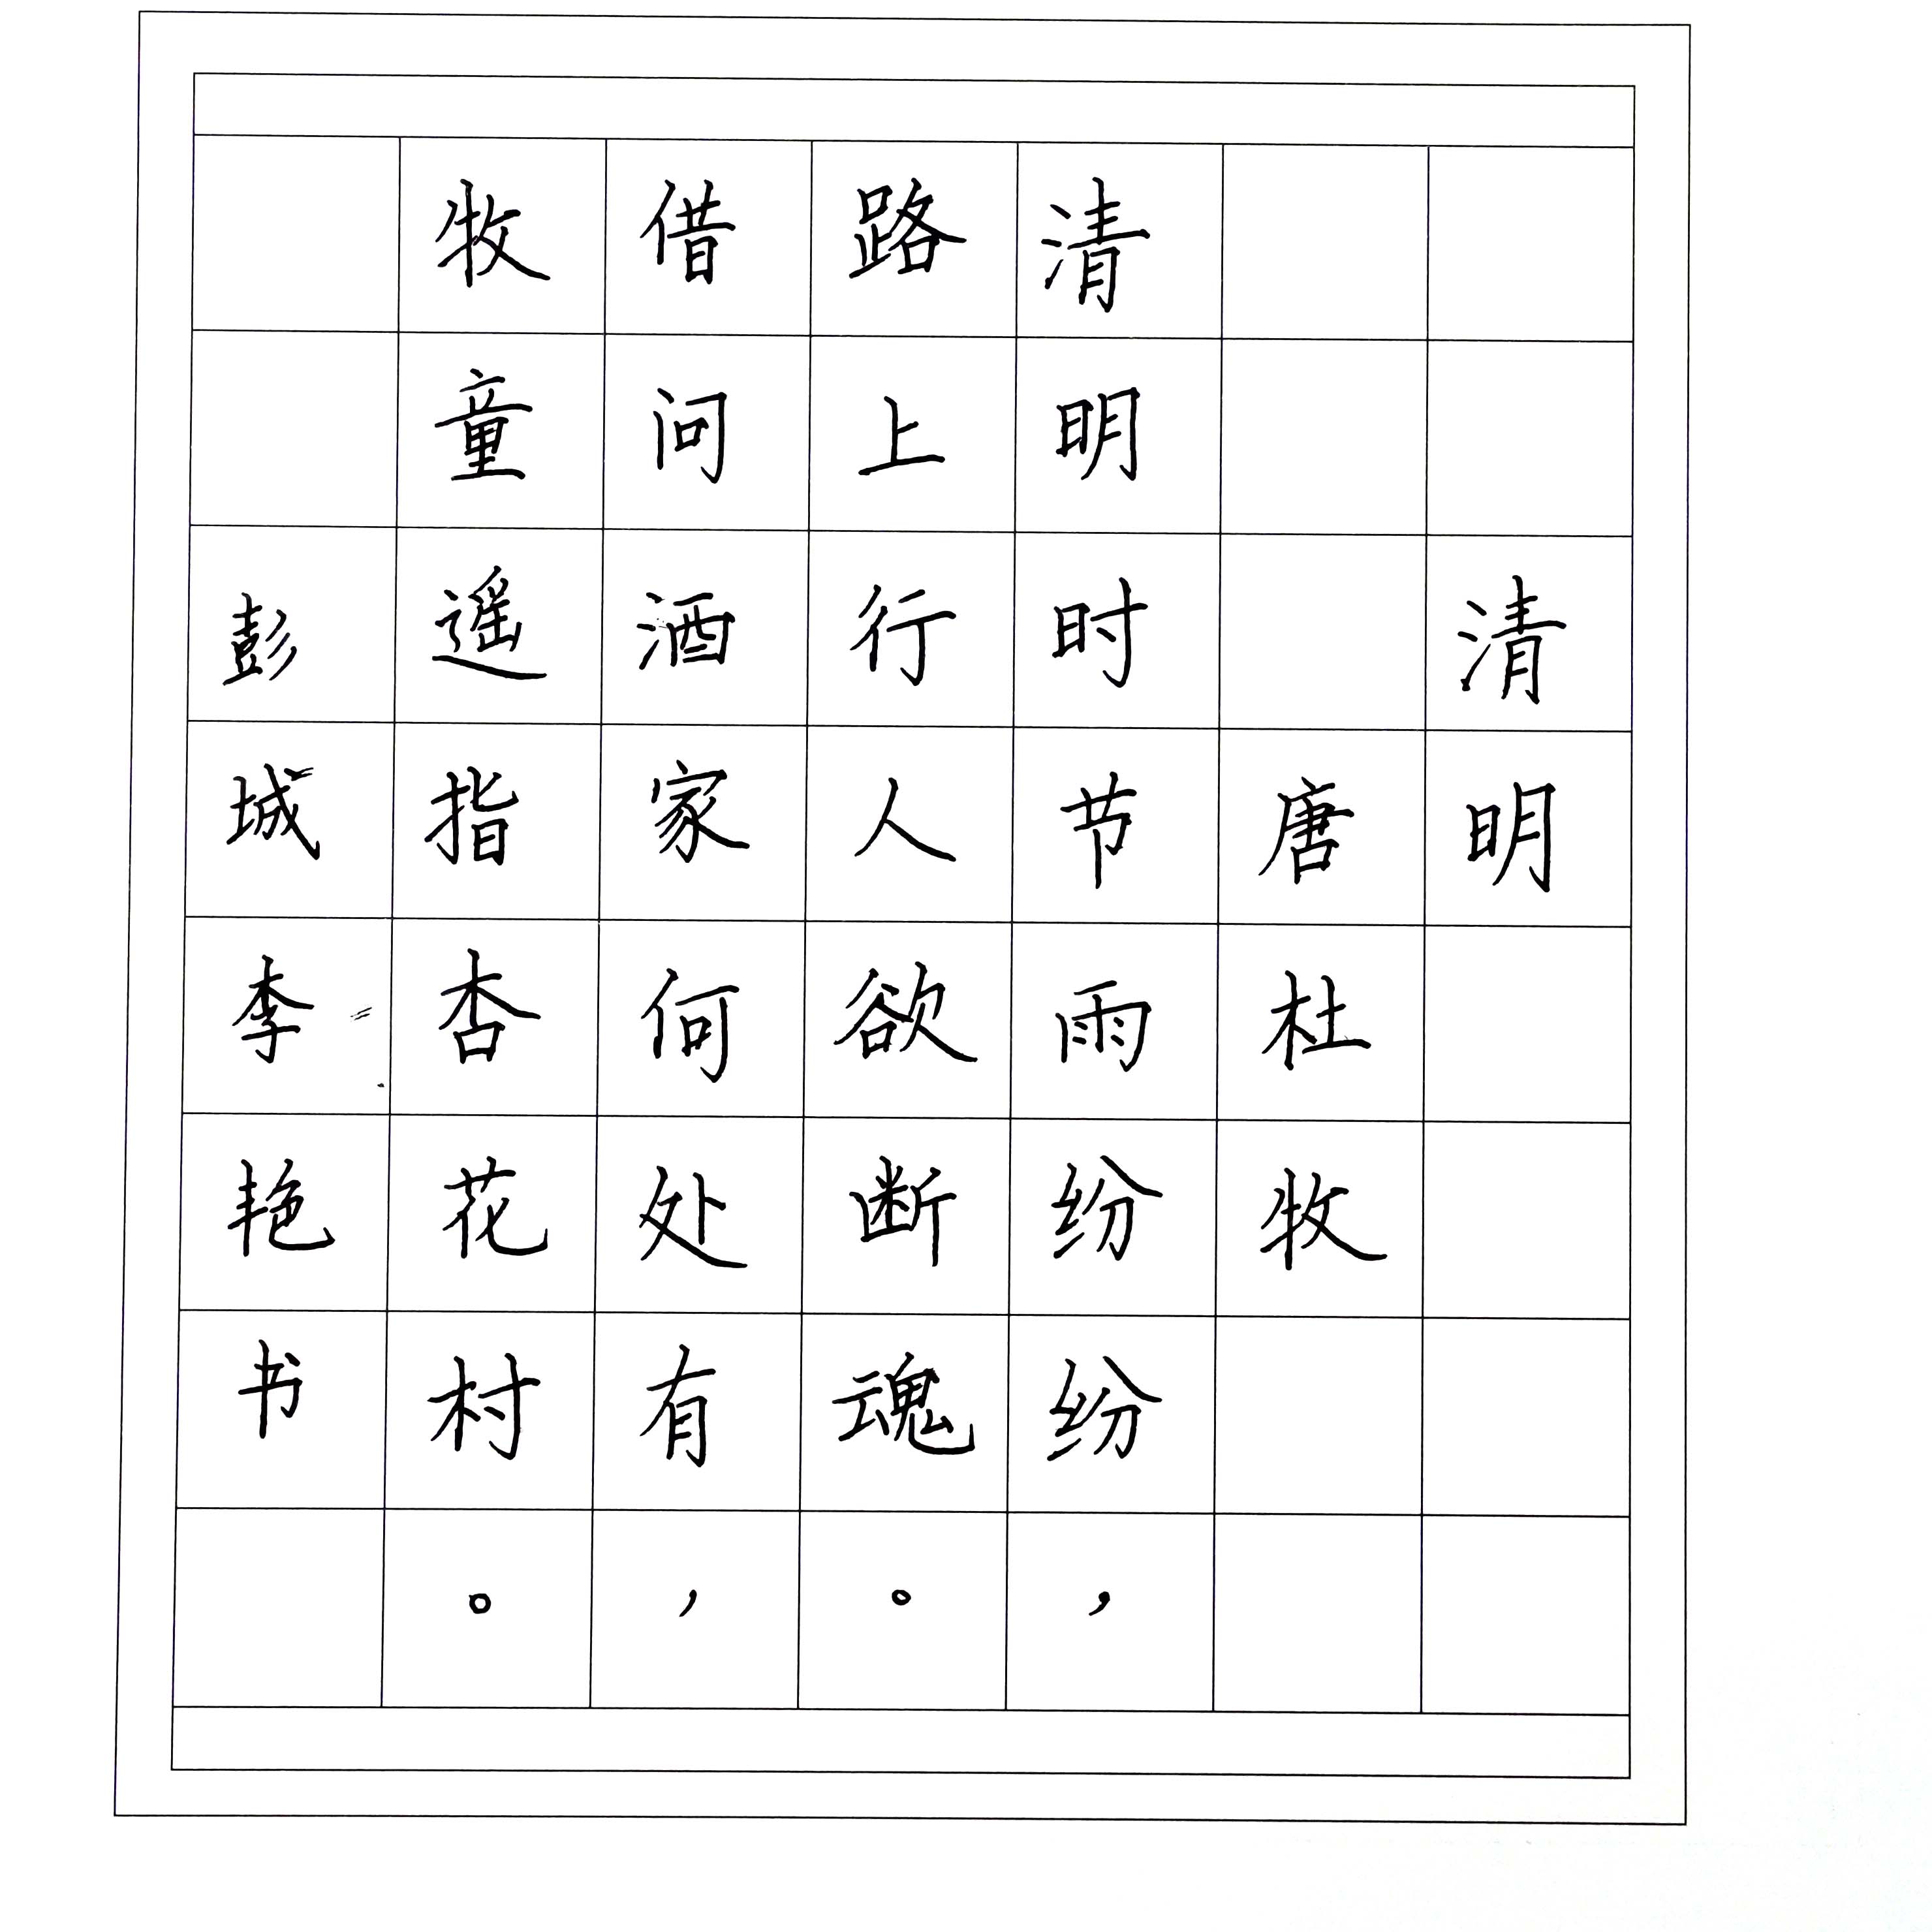 清明
唐杜牧
清明时节雨纷纷，
路上行人欲断魂。
借问酒家何处有，
牧童遥指杏花村。
彭城李艳书